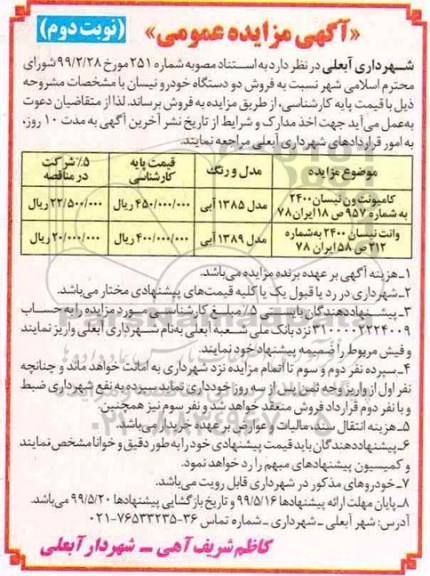 «آگهی مزایده عمومی» (نوبت دوم)
شهرداری آبعلی در نظر دارد به استناد مصوبه شماره ۲۵۱ مورخ ۹۹/۲/۲۸ شورای
محترم اسلامی شهر نسبت به فروش دو دستگاه خودرو نیسان با مشخصات مشروحه
ذیل با قیمت پایه کارشناسی، از طریق مزایده به فروش برساند. لذا از متقاضیان دعوت
به‌عمل می‌آید جهت اخذ مدارک و شرایط از تاریخ نشر آخرین آگهی به مدت ۱۰ روز،
به امور قراردادهای شهرداری آبعلی مراجعه نمایند.
موضوع مزایده | مدل و رنگ | قیمت پایه کارشناسی | ۵٪ شرکت در مناقصه
کامیونت ون نیسان ۲۴۰۰ به شماره ۹۵۷ ص ۱۸ ایران ۷۸ | مدل ۱۳۸۵ آبی | ۴۵۰/۰۰۰/۰۰۰ ریال | ۲۲/۵۰۰/۰۰۰ ریال
وانت نیسان ۲۴۰۰ به‌شماره ۲۱۲ ص ۵۸ ایران ۷۸ | مدل ۱۳۸۹ آبی | ۴۰۰/۰۰۰/۰۰۰ ریال | ۲۰/۰۰۰/۰۰۰ ریال
۱ـ هزینه آگهی بر عهده برنده مزایده می‌باشد.
۲ـ شهرداری در رد یا قبول یک یا کلیه قیمت‌های پیشنهادی مختار می‌باشد.
۳ـ پیشنهاددهندگان بایستی ۵٪ مبلغ کارشناسی مورد مزایده را به حساب
۳۱۰۰۰۰۲۲۲۴۰۰۹ نزد بانک ملی شعبه آبعلی به‌نام شهرداری آبعلی واریز نمایند
و فیش مربوط را ضمیمه پیشنهاد خود نمایند.
۴ـ سپرده نفر دوم و سوم تا اتمام مزایده نزد شهرداری به امانت خواهد ماند و چنانچه
نفر اول از واریز وجه ثمن بعد از سه روز خودداری نماید سپرده به نفع شهرداری ضبط
و با نفر دوم قرارداد فروش منعقد خواهد شد و نفر سوم نیز همچنین.
۵ـ هزینه انتقال سند، مالیات و عوارض برعهده خریدار می‌باشد.
۶ـ پیشنهاددهندگان باید قیمت پیشنهادی خود را به‌طور دقیق و خوانا مشخص نمایند
و کمیسیون پیشنهادهای مبهم را رد خواهد نمود.
۷ـ خودروهای مذکور در شهرداری قابل رویت می‌باشد.
۸ـ پایان مهلت ارائه پیشنهادها ۹۹/۵/۱۶ و تاریخ بازگشایی پیشنهادها ۹۹/۵/۲۰ می‌باشد.
آدرس: شهر آبعلی ـ شهرداری ـ شماره تماس ۳۶-۷۶۵۳۳۲۳۵-۰۲۱
کاظم شریف آهی ـ شهردار آبعلی